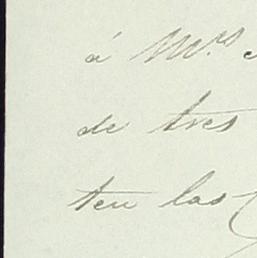 á Mrs.
de tres
ten las